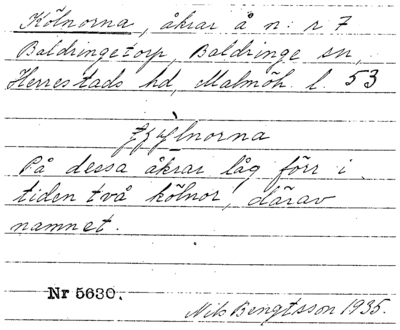 Kölnorna, åkrar å n: r 7
Baldringetorp, Baldringe sn,
Herrestads hd, Malmöh. l. 53
På dessa åkrar låg förr i
tiden två kölnor, därav
namnet.
Nr 5630.
Nils Bengtsson 1935.